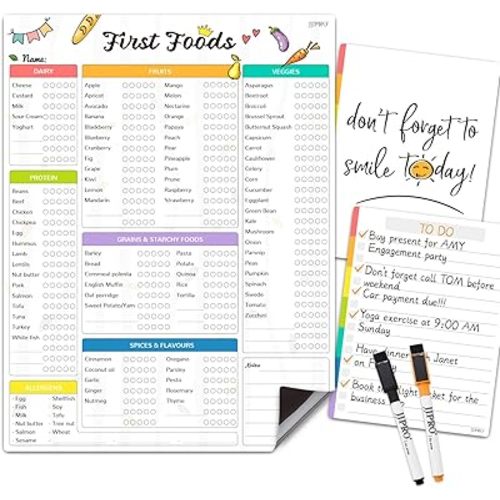 JJPRO
First Foods
Name:
DAIRY
Cheese
Custard
Milk
Sour Cream
Yoghurt
PROTEIN
Beans
Beef
Chicken
Chickpea
Egg
Hummus
Lamb
Lentils
Nut butter
Pork
Salmon
Tofu
Tuna
Turkey
White fish
ALLERGENS
- Egg - Shellfish
- Fish - Soy
- Milk - Tofu
- Nut butter - Tree nut
- Salmon - Wheat
- Sesame
FRUITS
Apple Mango
Apricot Melon
Avocado Nectarine
Banana Orange
Blackberry Papaya
Blueberry Peach
Cranberry Pear
Fig Pineapple
Grape Plum
Kiwi Prune
Lemon Raspberry
Mandarin Strawberry
GRAINS & STARCHY FOODS
Barley Pasta
Bread Potato
Oat porridge Rice
English Muffin Quinoa
Sweet Potato/Yam Tortilla
SPICES & FLAVOURS
Cinnamon Oregano
Coconut oil Parsley
Garlic Pesto
Ginger Rosemary
Nutmeg Thyme
VEGGIES
Asparagus
Beetroot
Broccoli
Brussel Sprout
Butternut Squash
Capsicum
Carrot
Cauliflower
Celery
Cucumber
Eggplant
Green Bean
Kale
Mushroom
Onion
Parsnip
Peas
Pumpkin
Spinach
Swede
Tomato
Zucchini
Notes
don't forget to
smile today!
TO DO
Buy present for AMY
Engagement party
Don't forget call TOM before
weekend
Car payment due!!!
Yoga exercise at 9:00 AM
Sunday
Have dinner Janet
on
Book ticket for the
business
JJPRO
JJPRO